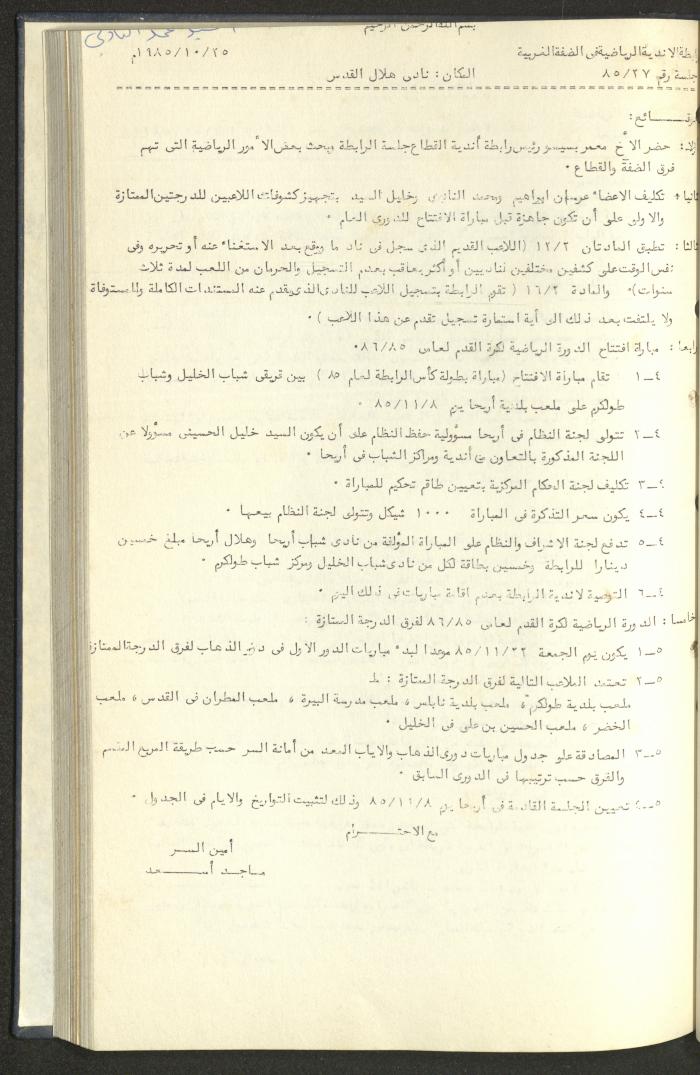 بسم الله الرحمن الرحيم
السيد محمد النادي
رابطة الاندية الرياضية في الضفة الغربية ١٩٨٥/١٠/٢٥م
جلسة رقم ٨٥/٢٧ المكان: نادي هلال القدس
الوقـــــائع:
اولا: حضر الأخ معمر بسيسو رئيس رابطة أندية القطاع جلسة الرابطة وبحث بعض الأمور الرياضية التي تهم
فرق الضفة والقطاع ٠
ثانيا: تكليف الاعضاء عرسان ابراهيم ومحمد النادي وخليل السيد بتجهيز كشوفات اللاعبين للدرجتين الممتازة
والاولى على أن تكون جاهزة قبل مباراة الافتتاح للدوري العام ٠
ثالثا: تطبيق المادتان ١٢/٢ (اللاعب القديم الذي سجل في ناد ما ووقع بعد الاستغناء عنه أو تحريره وفي
نفس الوقت على كشفين مختلفين لناديين أو أكثر يعاقب بعدم التسجيل والحرمان من اللعب لمدة ثلاث
سنوات)٠ والمادة ١٦/٢ ( تقوم الرابطة بتسجيل اللاعب للنادي الذي يقدم عنه المستندات الكاملة والمستوفاة
ولا يلتفت بعد ذلك الى أية استمارة تسجيل تقدم عن هذا اللاعب )٠
رابعا: مباراة افتتاح الدورة الرياضية لكرة القدم لعامي ٨٦/٨٥٠
٤ــ١ تقام مباراة الافتتاح (مباراة بطولة كأس الرابطة لعام ٨٥ ) بين فريقي شباب الخليل وشباب
طولكرم على ملعب بلدية أريحا يوم ٨٥/١١/٨ ٠
٤ــ٢ تتولى لجنة النظام في أريحا مسؤولية حفظ النظام على أن يكون السيد خليل الحسيني مسؤولا عن
اللجنة المذكورة بالتعاون مع أندية ومراكز الشباب في أريحا ٠
٤ــ٣ تكليف لجنة الحكام المركزية بتعيين طاقم تحكيم للمباراة ٠
٤ــ٤ يكون سعر التذكرة في المباراة ١٠٠٠ شيكل وتتولى لجنة النظام بيعها ٠
٤ــ٥ تدفع لجنة الاشراف والنظام على المباراة المؤلفة من نادي شباب أريحا وهلال أريحا مبلغ خمسين
دينارا للرابطة وخمسين بطاقة لكل من نادي شباب الخليل ومركز شباب طولكرم ٠
٤ــ٦ التوصية لاندية الرابطة بعدم اقامة مباريات في ذلك اليوم ٠
خامسا: الدورة الرياضية لكرة القدم لعامي ٨٦/٨٥ لفرق الدرجة الممتازة :
٥ــ١ يكون يوم الجمعة ٨٥/١١/٢٢ موعدا لبدء مباريات الدور الاول في دوري الذهاب لفرق الدرجة الممتازة
٥ــ٢ تعتمد الملاعب التالية لفرق الدرجة الممتازة :
ملعب بلدية طولكرم ، ملعب بلدية نابلس ، ملعب مدرسة البيرة ، ملعب المطران في القدس ، ملعب
الخضر ، ملعب الحسين بن علي في الخليل ٠
٥ــ٣ المصادقة على جدول مباريات دوري الذهاب والاياب المعد من أمانة السر حسب طريقة المربع المقسم
والفرق حسب ترتيبها في الدوري السابق ٠
٥ــ٤ تعيين الجلسة القادمة في أريحا يوم ٨٥/١١/٨ وذلك لتثبيت التواريخ والايام في الجدول ٠
مع الاحتـــــرام
أمين الســر
ماجـد أســعد